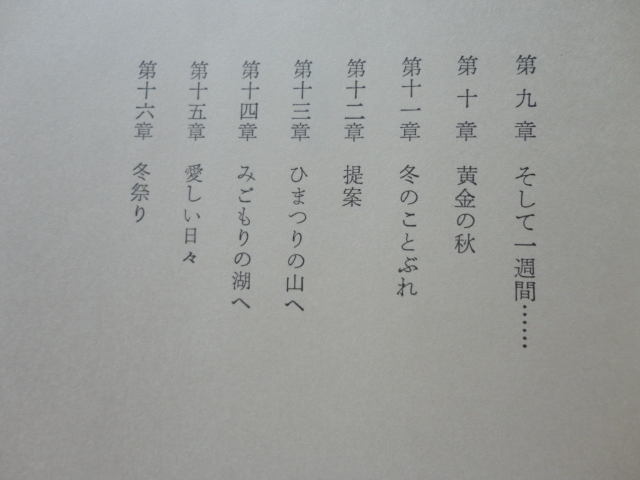 第九章 そして一週間……
第十章 黄金の秋
第十一章 冬のことぶれ
第十二章 提案
第十三章 ひまつりの山へ
第十四章 みごもりの湖へ
第十五章 愛しい日々
第十六章 冬祭り